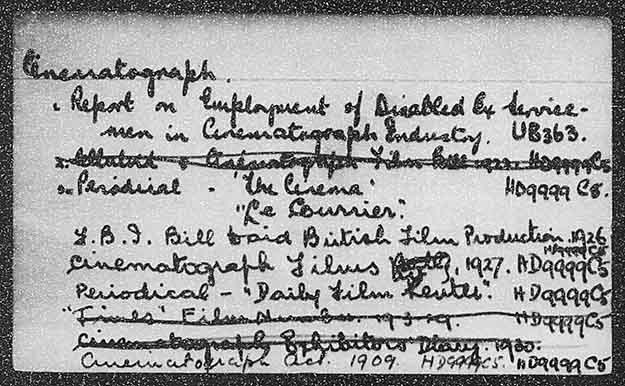 Cinematograph.
1. Report on Employment of Disabled Ex Service-
men in Cinematograph Industry. UB363.
2. Celluloid & Cinematograph Film Bill 1922. HD9999C5
3. Periodical - 'The Cinema' HD9999 C5.
"Le Courrier".
F.B.I. Bill to aid British Film Production. 1926
HD9999C5
Cinematograph Films 1927. HD9999C5
Periodical - "Daily Film Renter". HD9999C5
"Times" Film Number. 19.3.29. HD9999C5
Cinematograph Exhibitors Diary. 1930.
Cinematograph Act. 1909. HD9999C5. HD9999C5